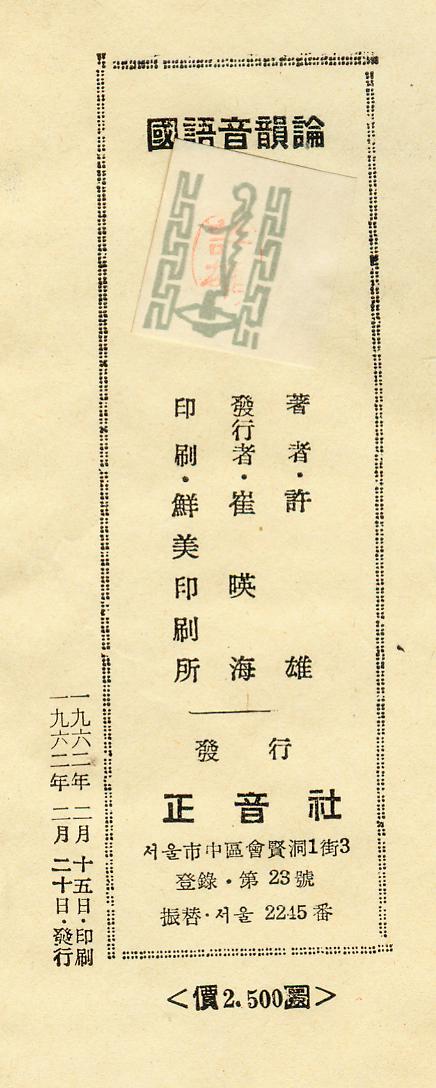 國語音韻論
著者·許雄
發行者·崔暎海
印刷·鮮美印刷所
發行
正音社
서울市中區會賢洞1街3
登錄·第23號
振替·서울 2245番
一九六二年 二月 十五日·印刷
一九六二年 二月 二十日·發行
<價2.500圜>